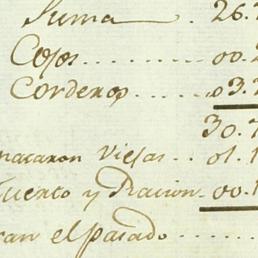 Suma . 26.2
Cojos . . . . . . . . . 00.2
Corderos . . . . . 03.2
30.7
mataron viejas . . 01.1
uerto y Racion - 00.1
ran el pasado . . . . .